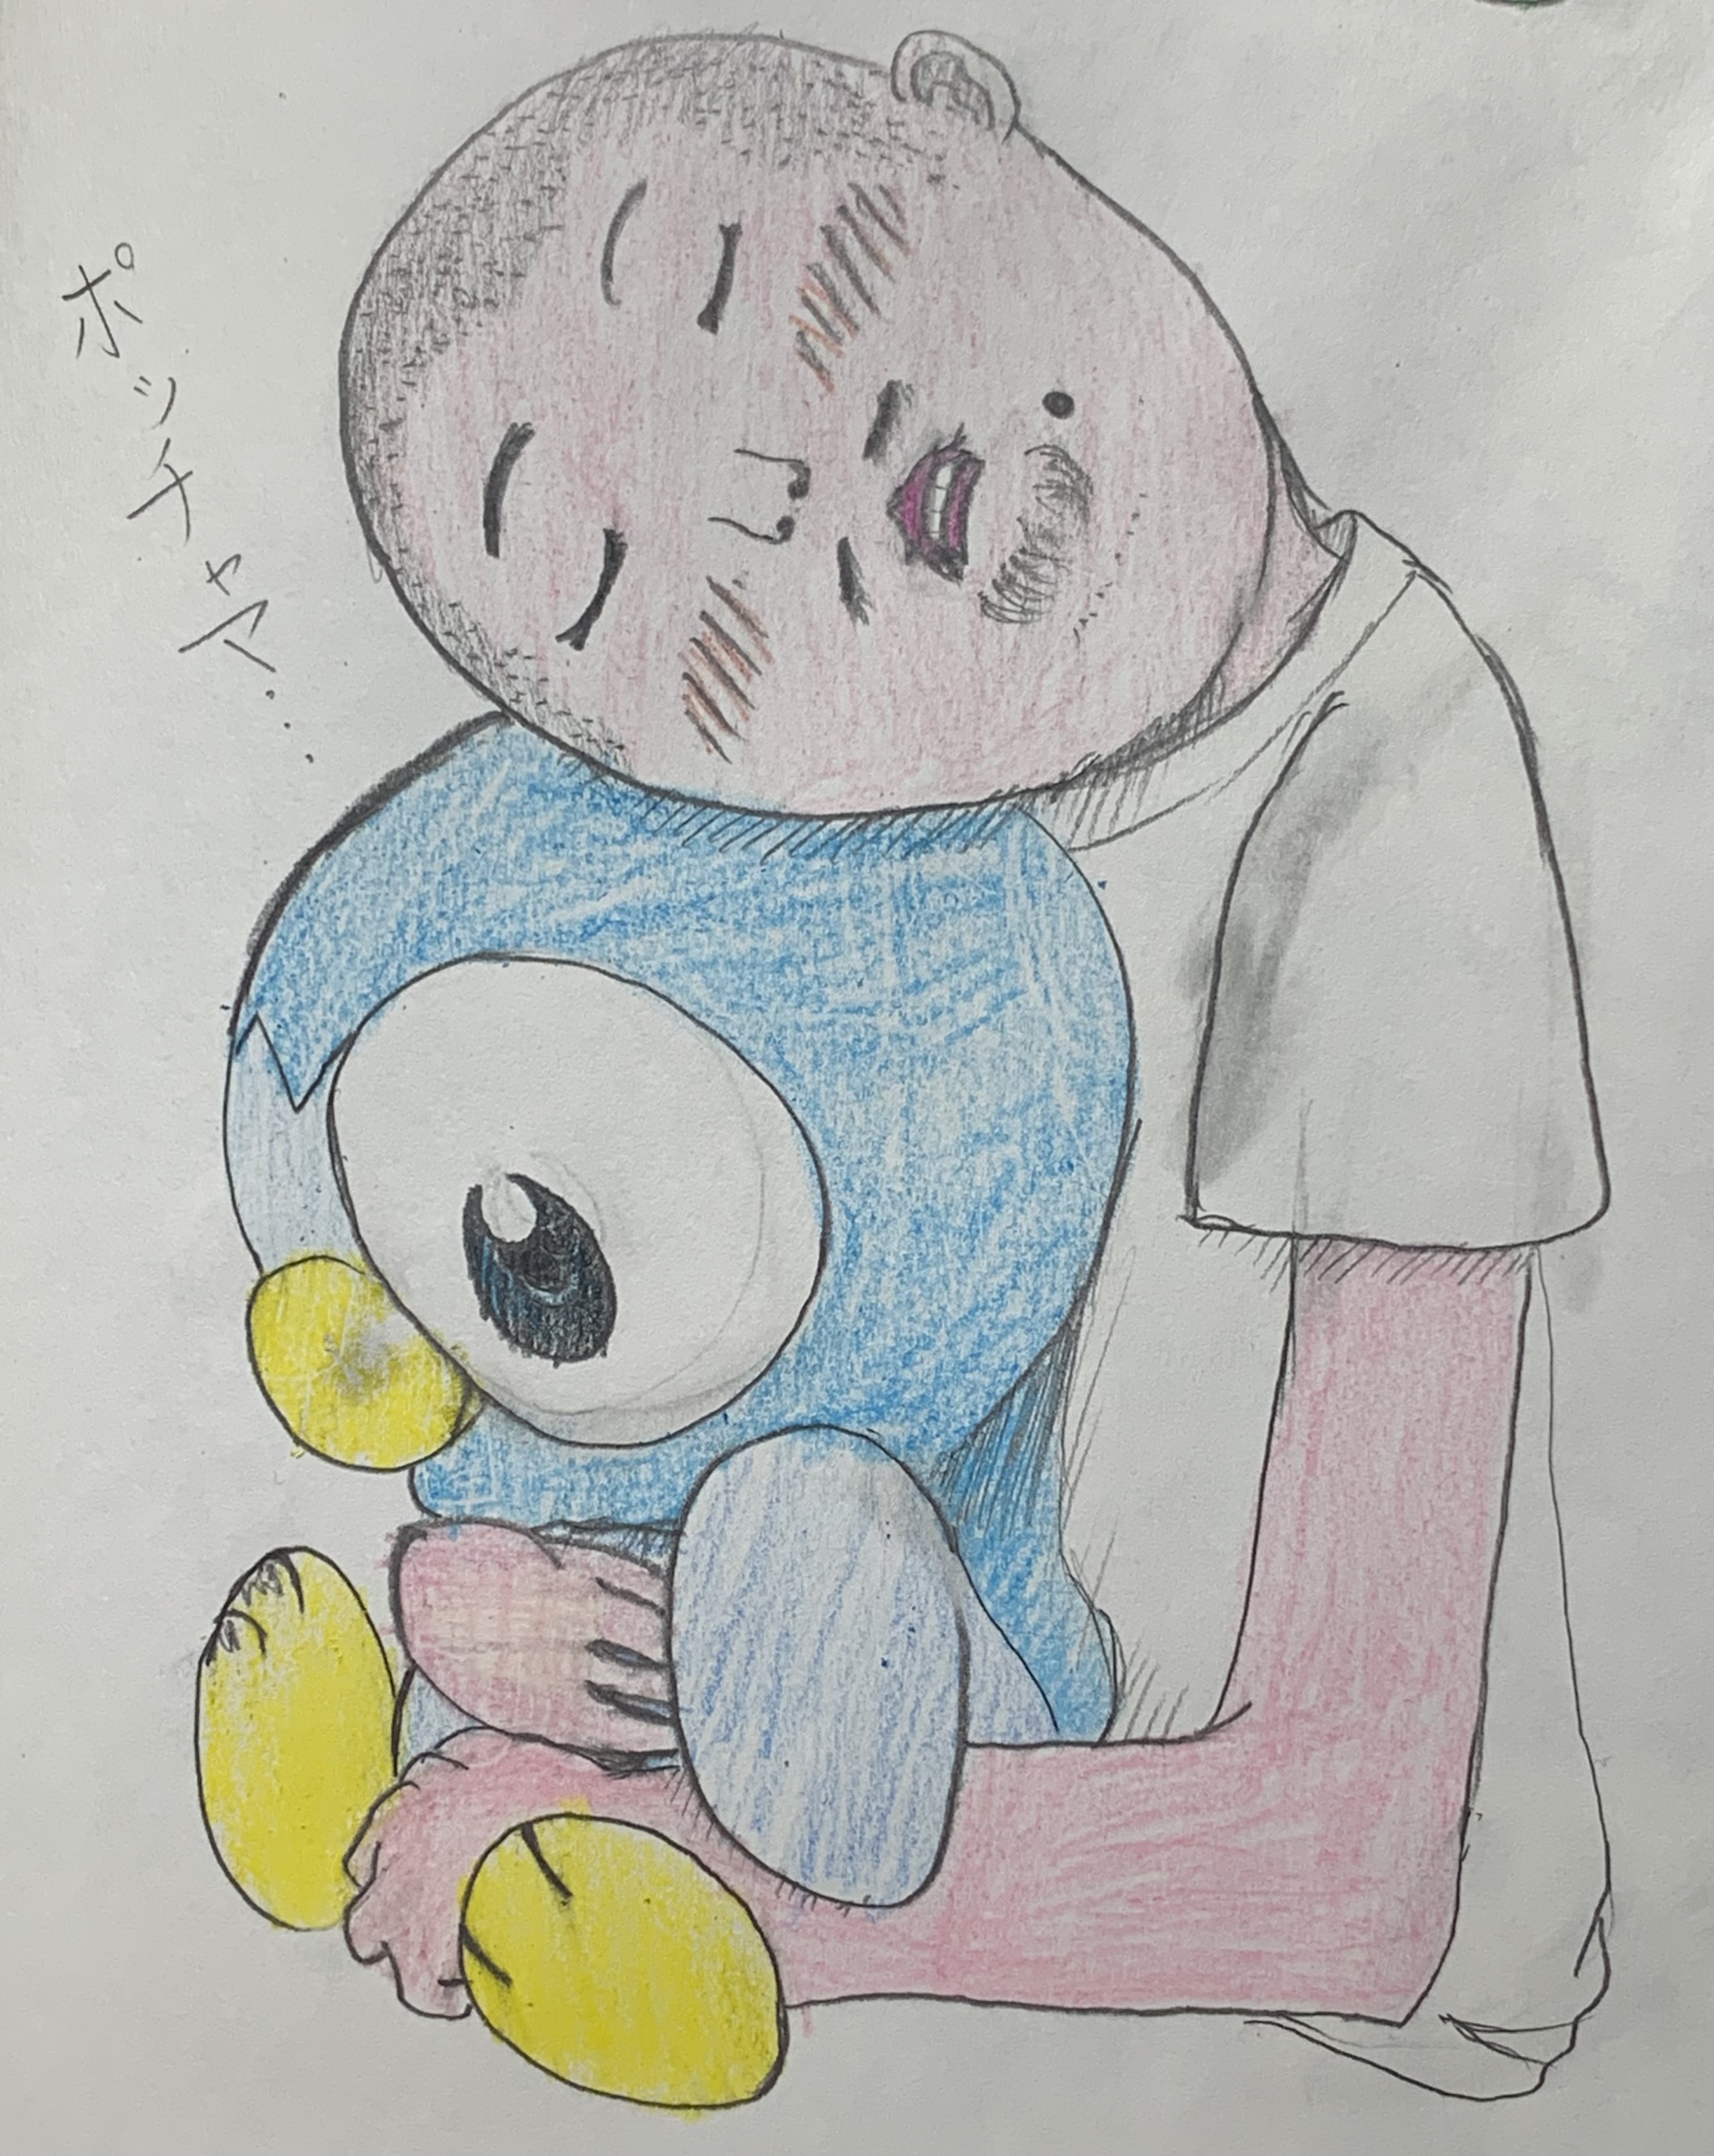 ポッチャア...